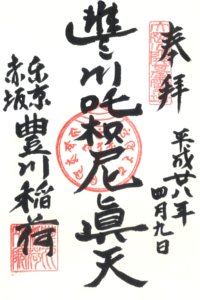 奉拝
平成廿八年
四月九日
豊川吒枳尼眞天
東京
赤坂
豊川稲荷